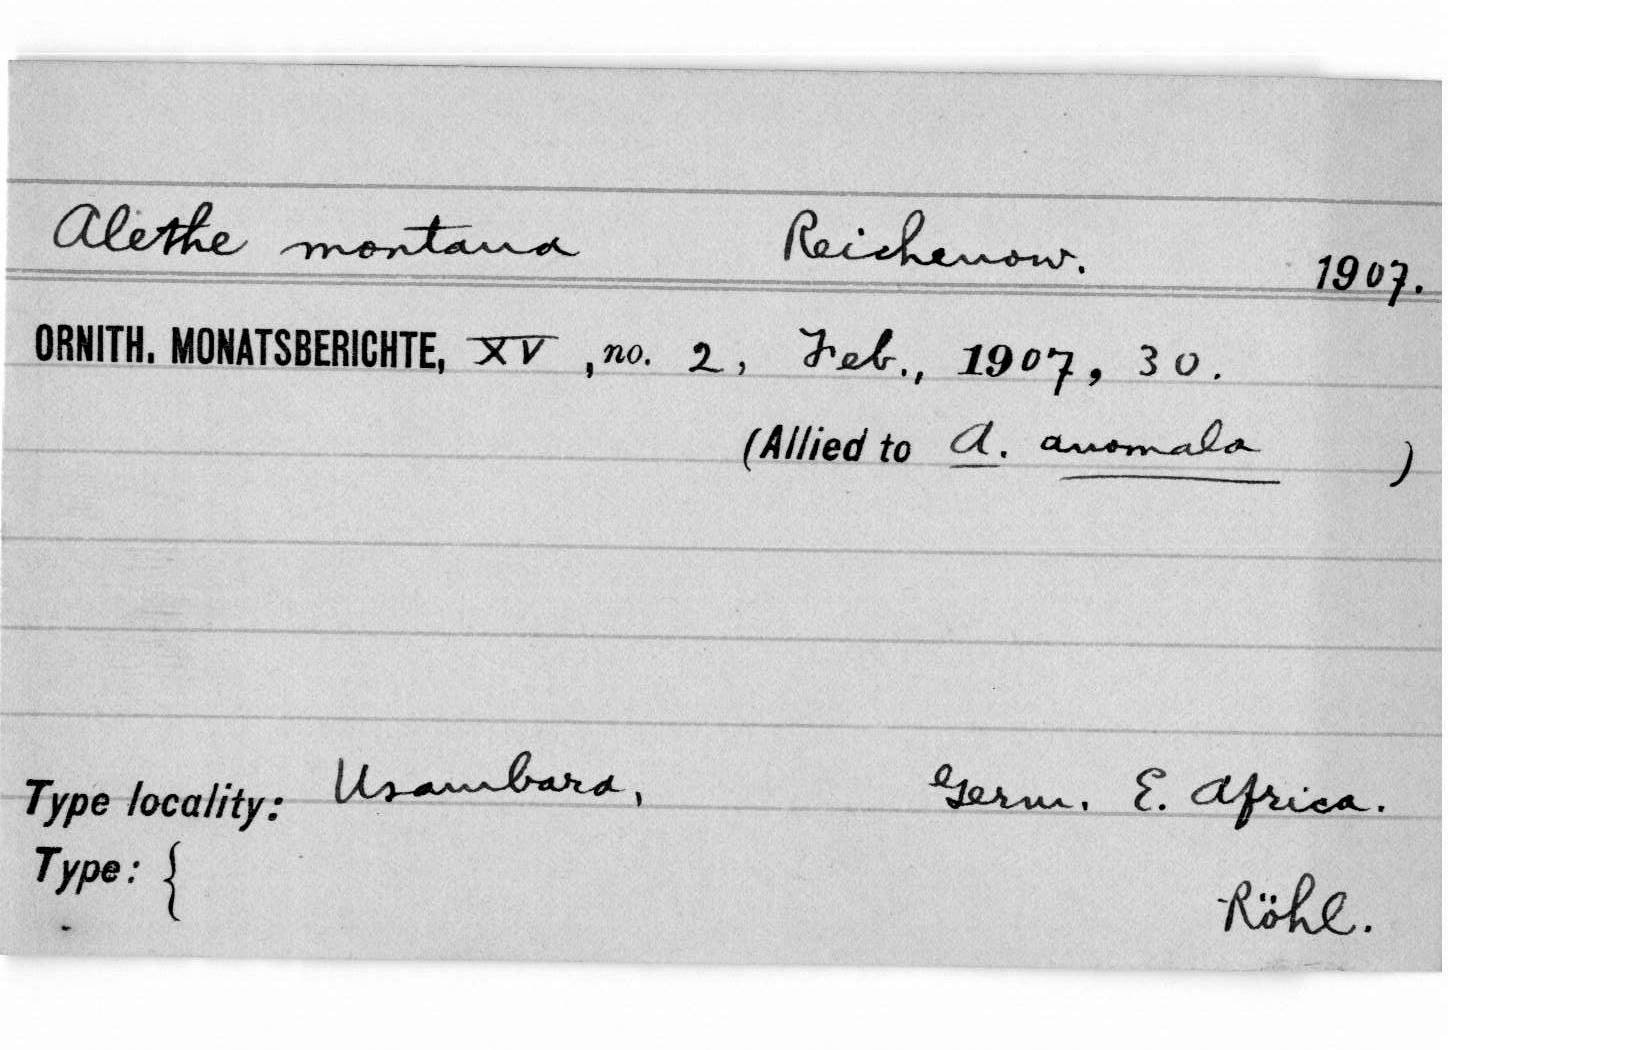 Alethe montana Reichenow. 1907.
ORNITH. MONATSBERICHTE, XV, no. 2, Feb., 1907, 30.
(Allied to A. anomala )
Type locality: Usambara, Germ. E. Africa.
Type: {
Röhl.